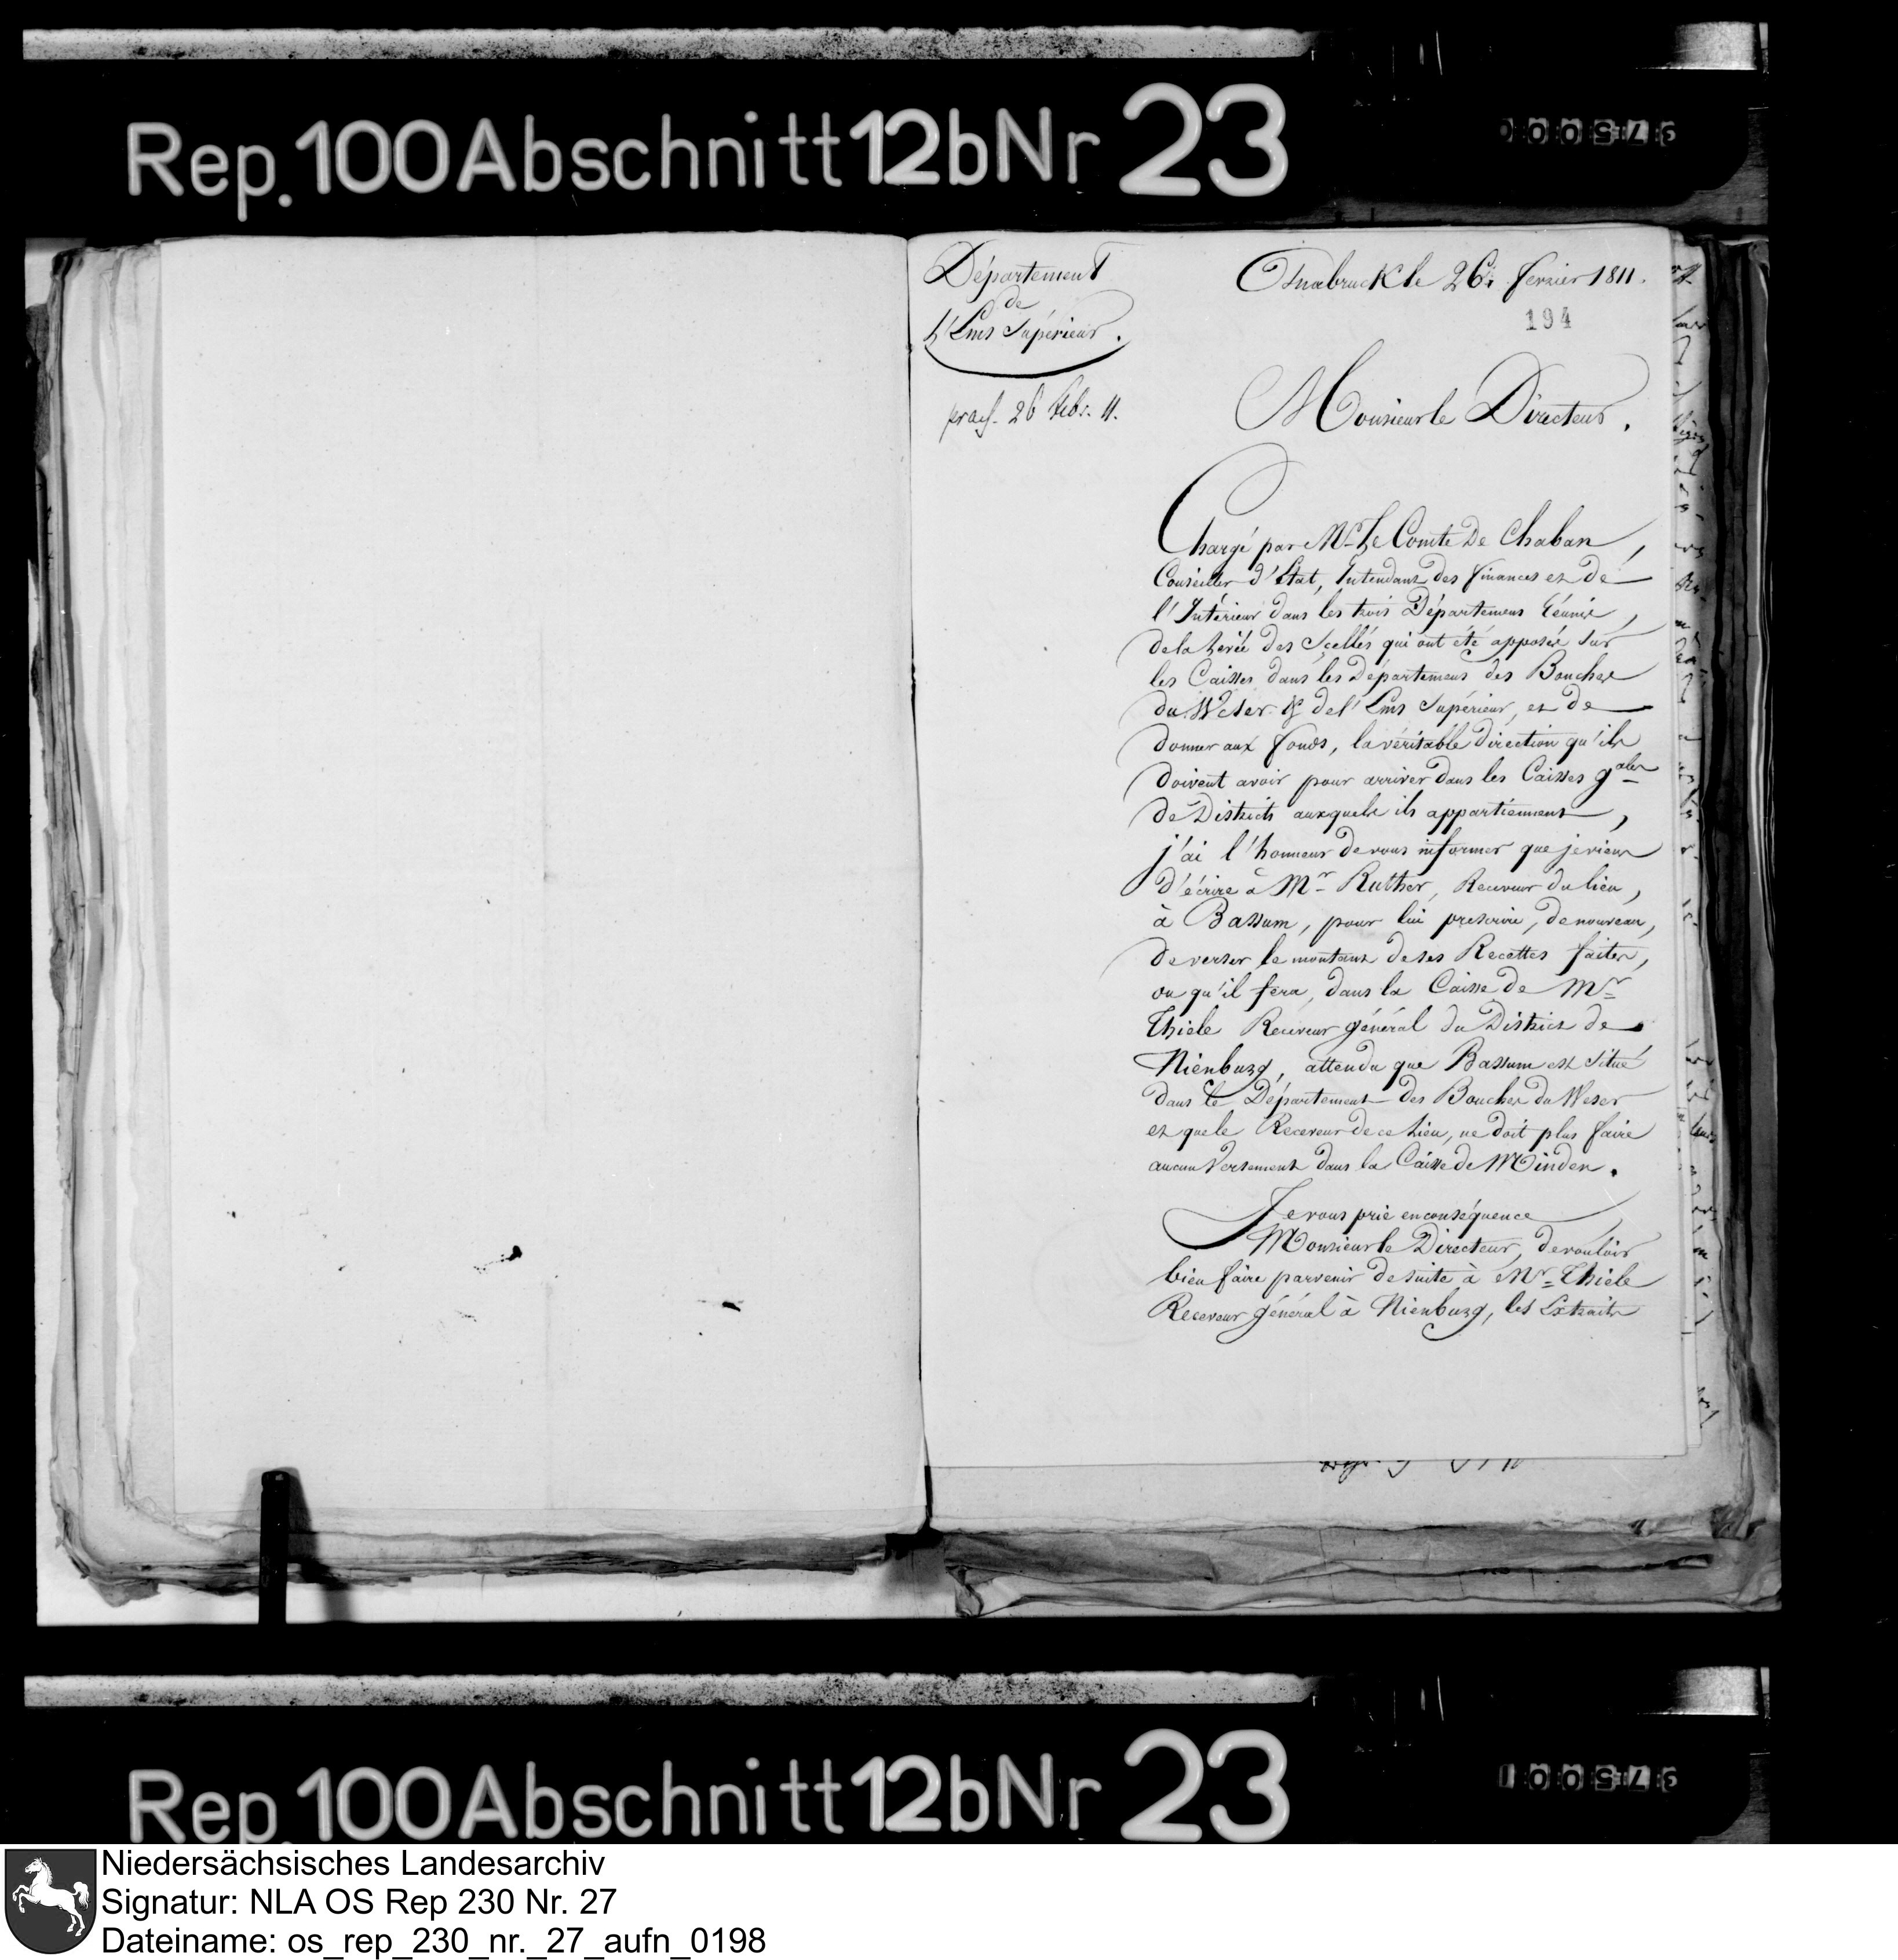 Rep. 100 Abschnitt 12b Nr 23
Département
de
l'Ems Supérieur.
praes. 26 Febr. 11.
Osnabruck le 26. fevrier 1811.
194
Monsieur le Directeur.
Chargé par Mr. Le Comte De Chaban,
Conseiller d'État, Intendant des finances et de
l'Intérieur dans les trois Départemens Réunis,
de la levée des Scellés qui ont été apposés sur
les Caisses dans les Départemens des Bouches
du Weser & de l'Ems Supérieur, et de
donner aux fonds, la véritable direction qu'ils
doivent avoir pour arriver dans les Caisses gales
de Districts auxquels ils appartiennent,
j'ai l'honneur de vous informer que je viens
d'écrire à Mr Ruther, Receveur du lieu,
à Bassum, pour lui prescrire, de nouveau,
de verser le montant de ses Recettes faites,
ou qu'il fera, dans la Caisse de Mr
Thiele Receveur général du District de
Nienburg, attendu que Bassum est situé
dans le Département des Bouches du Weser
et que le Receveur de ce Lieu, ne doit plus faire
aucun Versement dans la Caisse de Minden.
Je vous prie en conséquence
Monsieur le Directeur, de vouloir
bien faire parvenir de suite à Mr. Thiele
Receveur général à Nienburg, les Extraits
Rep. 100 Abschnitt 12b Nr 23
Niedersächsisches Landesarchiv
Signatur: NLA OS Rep 230 Nr. 27
Dateiname: os_rep_230_nr._27_aufn_0198